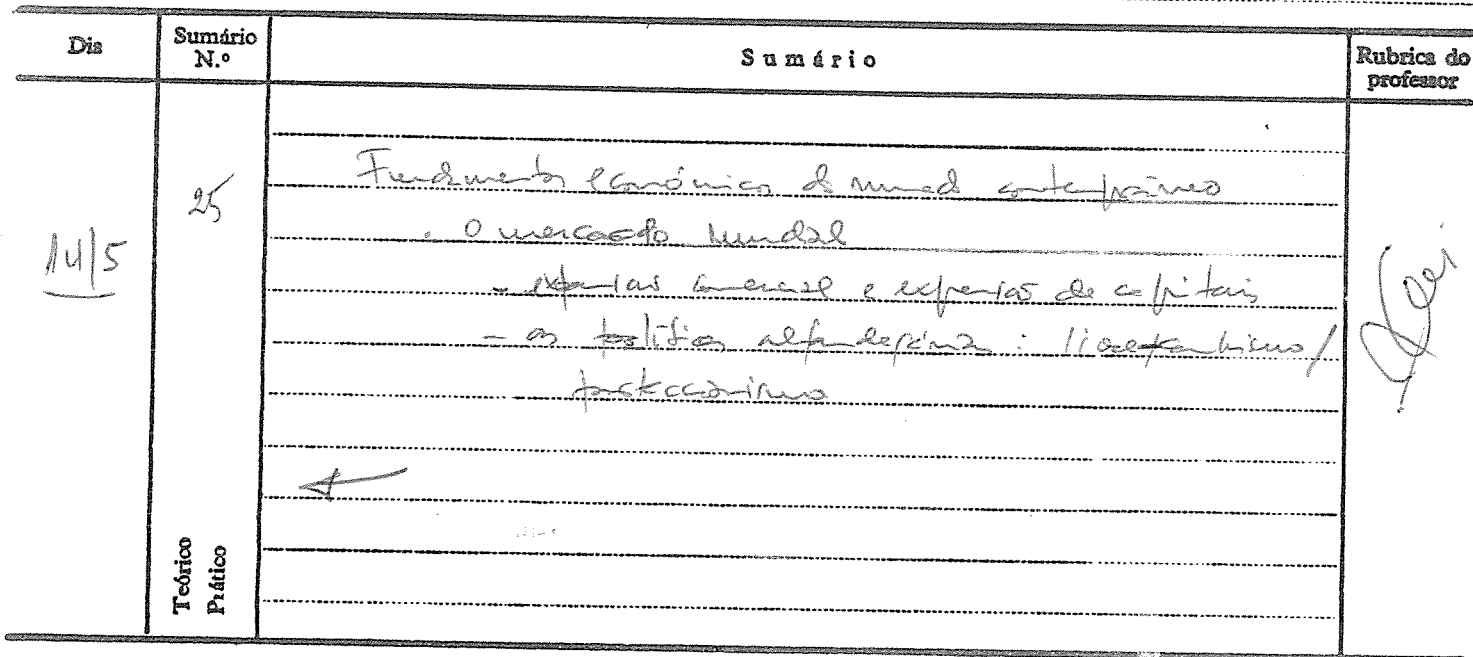 Dia
Sumário N.º
Sumário
Rubrica do professor
14/5
25
Fundamentos económicos do mundo contemporâneo
. O mercado mundial
- expansão comercial e expansão de capitais
- as políticas alfandegárias : livrecambismo/
proteccionismo
Teórico
Prático